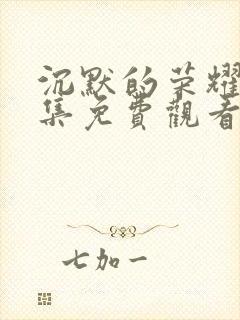 沉默的荣耀
集免費觀看
七加一